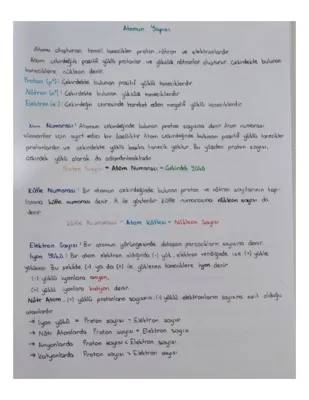 Atomun Yapısı
Atomu oluşturan temel tanecikler proton, nötron ve elektronlardır.
Atom çekirdeğini pozitif yüklü protonlar ve yüksüz nötronlar oluşturur. Çekirdekte bulunan
taneciklere nükleon denir.
Proton (p⁺): Çekirdekte bulunan pozitif yüklü taneciklerdir.
Nötron (n⁰): Çekirdekte bulunan yüksüz taneciklerdir.
Elektron (e⁻): Çekirdeğin çevresinde hareket eden negatif yüklü taneciklerdir.
Atom Numarası: Atomun çekirdeğinde bulunan proton sayısına denir. Atom numarası
elementler için ayırt edici bir özelliktir. Atom çekirdeğinde bulunan pozitif yüklü tanecikler
protonlardır ve çekirdekte yüklü başka tanecik yoktur. Bu yüzden proton sayısı,
çekirdek yükü olarak da adlandırılmaktadır.
Proton Sayısı = Atom Numarası = Çekirdek Yükü
Kütle Numarası: Bir atomun çekirdeğinde bulunan proton ve nötron sayılarının top-
lamına kütle numarası denir. A ile gösterilir. Kütle numarasına nükleon sayısı da
denir.
Kütle Numarası = Atom Kütlesi = Nükleon Sayısı
Elektron Sayısı: Bir atomun yörüngesinde dolaşan parçacıkların sayısına denir.
İyon Yükü: Bir atom elektron aldığında (-) yük, elektron verdiğinde ise (+) yükle
yüklenir. Bu şekilde (-) ya da (+) ile yüklenen taneciklere iyon denir.
(-) yüklü iyonlara anyon,
(+) yüklü iyonlara katyon denir.
Nötr Atom: (+) yüklü protonların sayısının (-) yüklü elektronların sayısına eşit olduğu
atomlardır.
→ İyon yükü = Proton sayısı - Elektron sayısı
→ Nötr Atomlarda Proton sayısı = Elektron sayısı
→ Anyonlarda Proton sayısı < Elektron sayısı
→ Katyonlarda Proton sayısı > Elektron sayısı